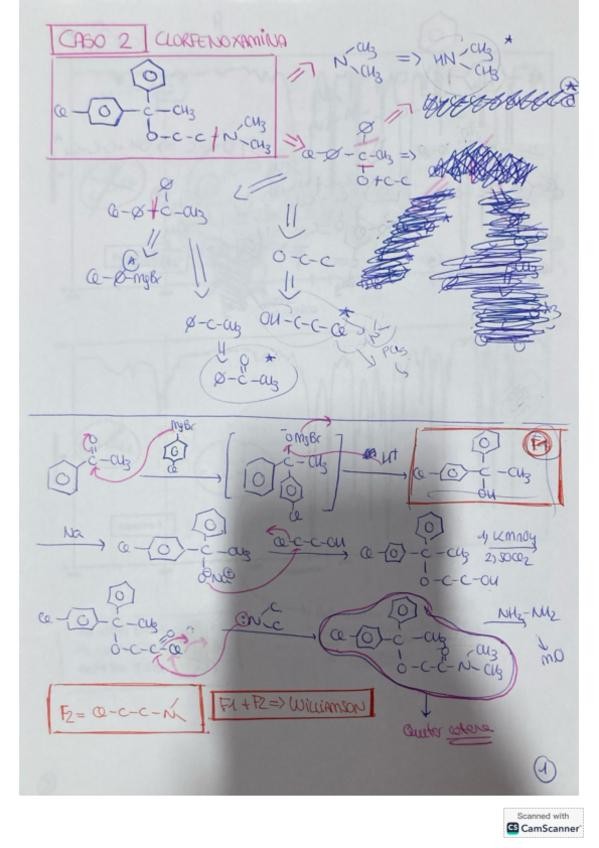 CASO 2 CLORFENOXAMINA
N CH3 CH3 => HN CH3 CH3 *
Cl C CH3
O-C-C N CH3 CH3
Cl-Ø-C-CH3 =>
O+C-C
Cl-Ø C-CH3
O-C-C
Cl-Ø-MgBr
Ø-C-CH3
OH-C-C-Cl *
PCl3
Ø-C-CH3 *
O
MgBr
C-CH3
Cl
OMgBr
C-CH3
Cl
H+
F1
Cl C-CH3
OH
Na
Cl C CH3
ONa
Cl-C-C-OH
Cl C CH3
O-C-C-OH
1) KMnO4
2) SOCl2
Cl C CH3
O-C-C Cl
N C C
Cl C CH3
O-C-C-N CH3 CH3
NH2-NH2
F2 = Cl-C-C-N
F1+F2 => WILLIAMSON
Quitar
1
Scanned with
CS CamScanner